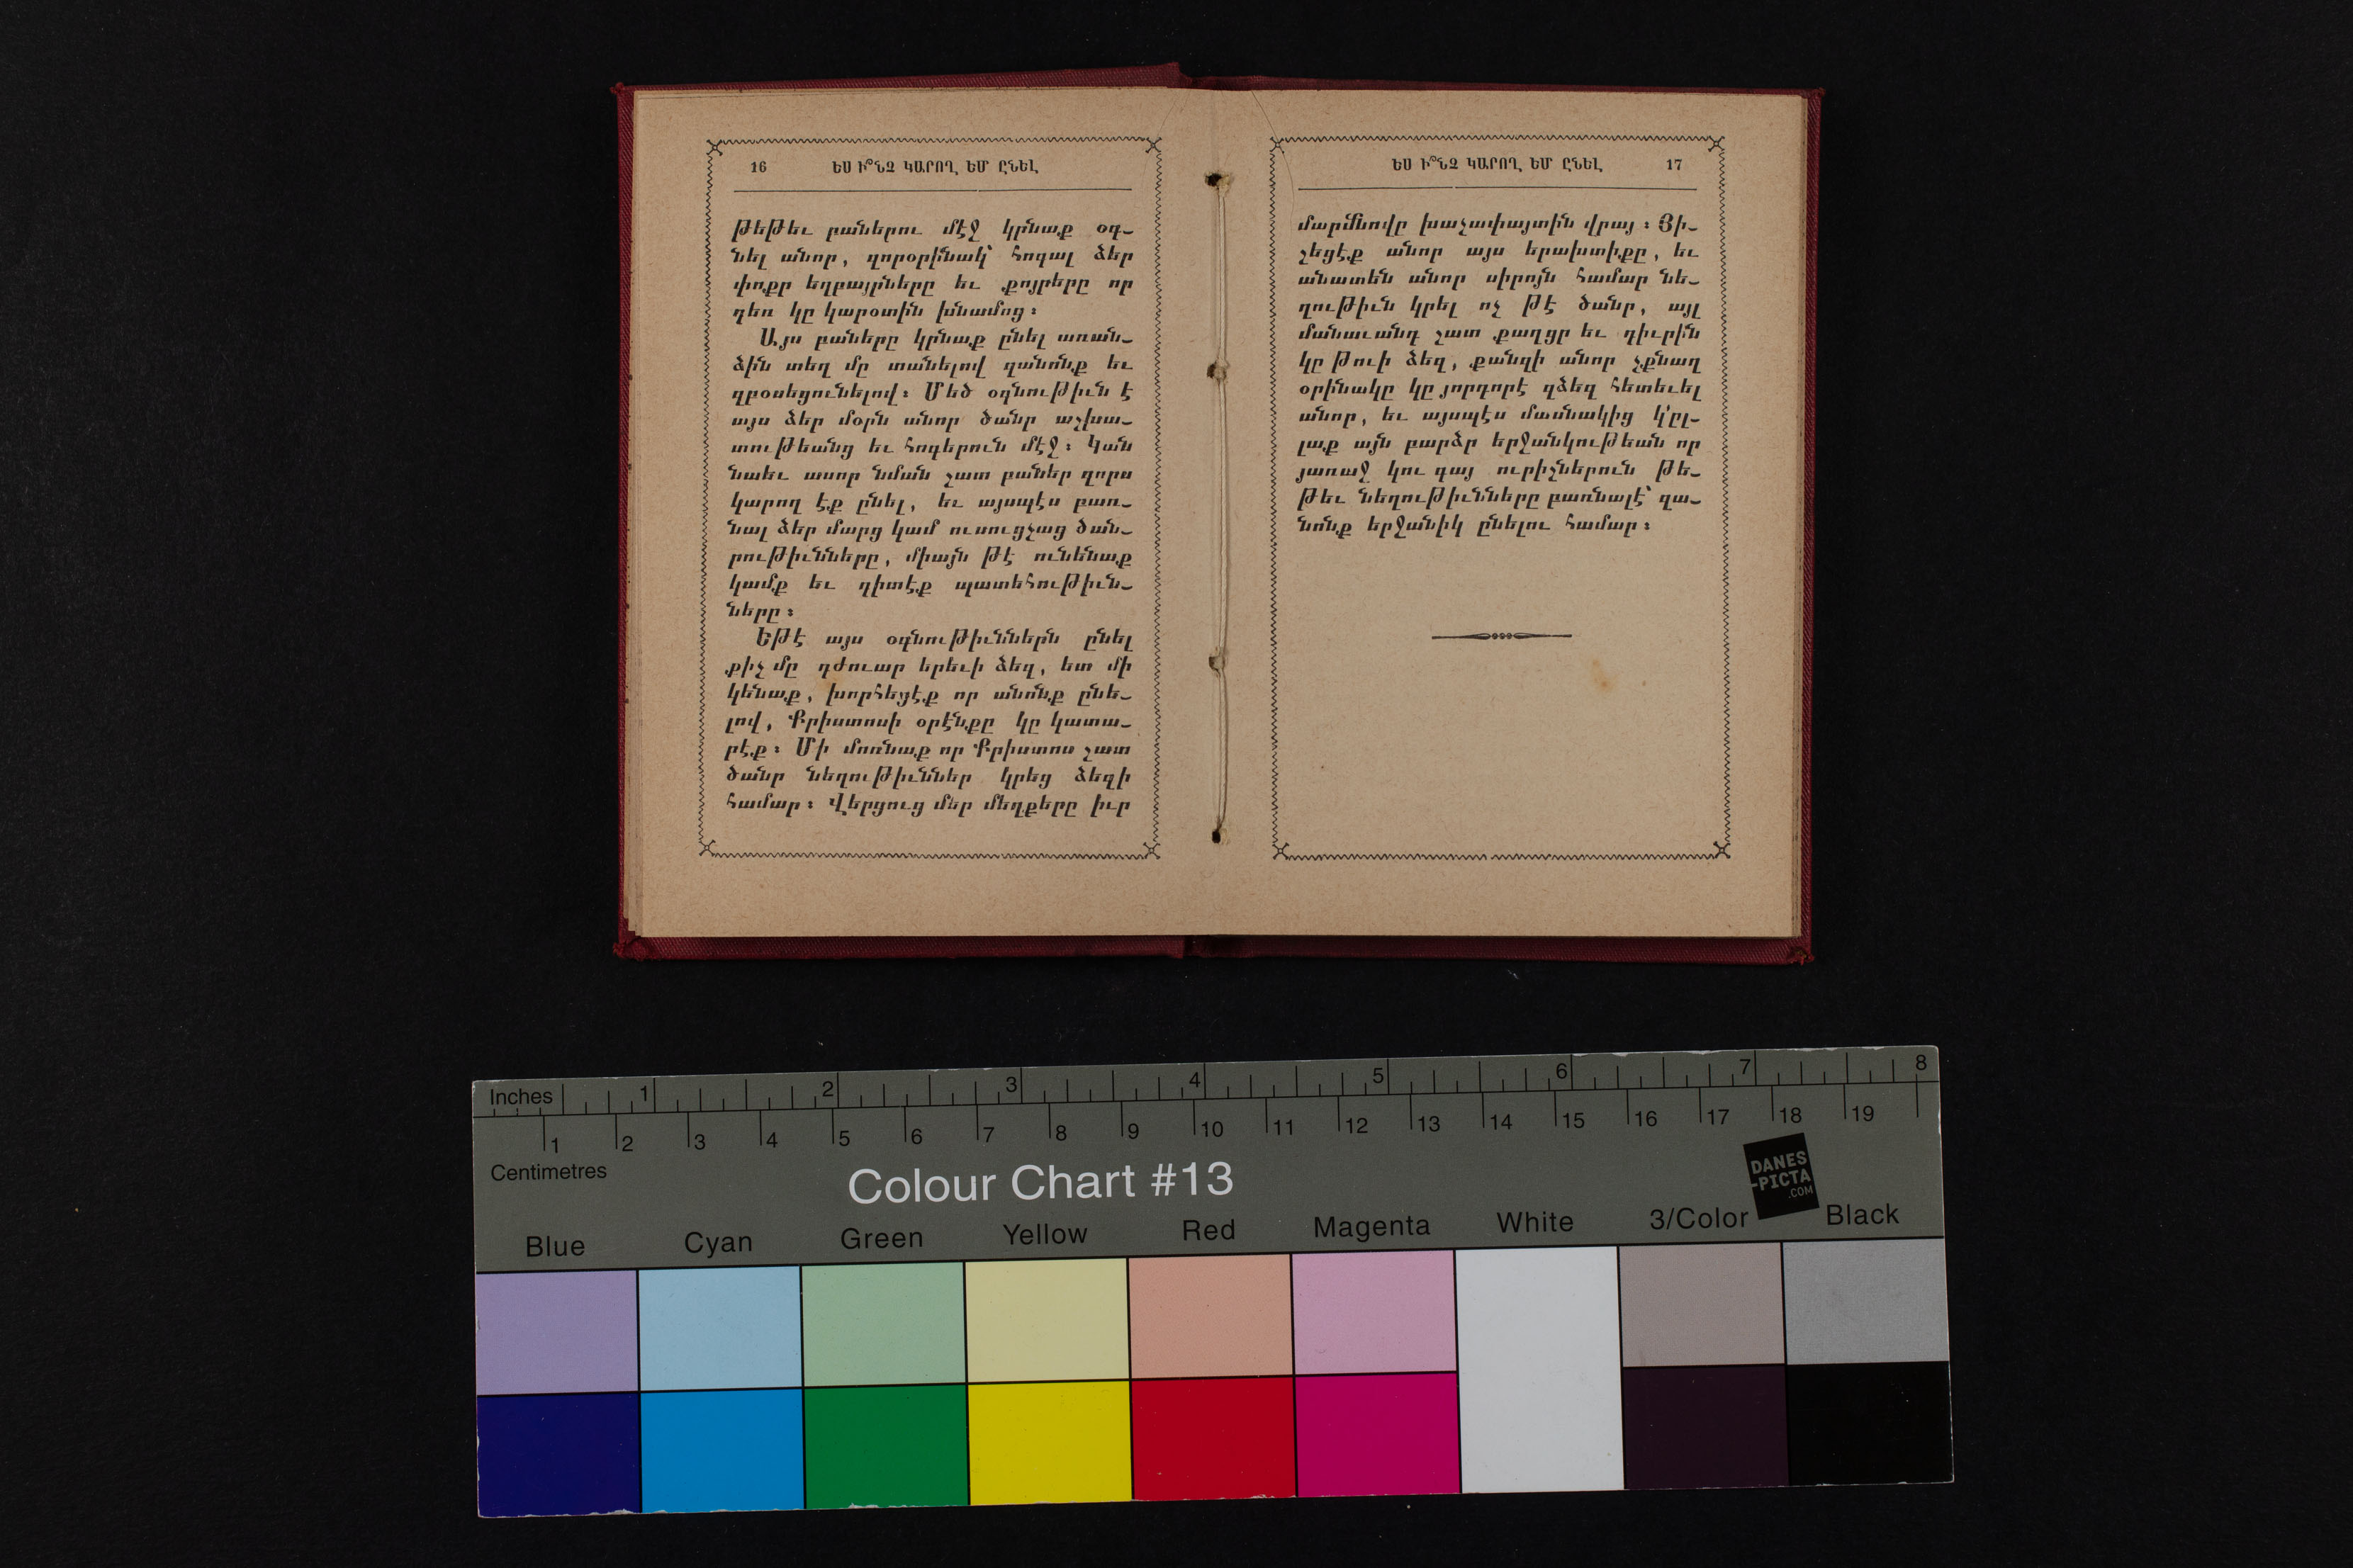 16 ԵՍ Ի՞ՆՉ ԿԱՐՈՂ ԵՄ ԸՆԵԼ
թեթեւ բաներու մէջ կրնաք օգ-
նել անոր, զորօրինակ՝ հոգալ ձեր
փոքր եղբայրները եւ քոյրերը որ
դեռ կը կարօտին խնամոց։
Այս բաները կրնաք ընել առան-
ձին տեղ մը տանելով զանոնք եւ
զբօսեցունելով։ Մեծ օգնութիւն է
այս ձեր մօրն անոր ծանր աշխա-
տութեանց եւ հոգերուն մէջ։ Կան
նաեւ ասոր նման շատ բաներ զորս
կարող էք ընել, եւ այսպէս բառ-
նալ ձեր մարց կամ ուսուցչաց ծան-
րութիւնները, միայն թէ ունենաք
կամք եւ դիտէք պատեհութիւն-
ները։
Եթէ այս օգնութիւններն ընել
քիչ մը դժուար երեւի ձեզ, ետ մի
կենաք, խորհեցէք որ անոնք ընե-
լով, Քրիստոսի օրէնքը կը կատա-
րէք։ Մի մոռնաք որ Քրիստոս շատ
ծանր նեղութիւններ կրեց ձեզի
համար։ Վերցուց մեր մեղքերը իւր
ԵՍ Ի՞ՆՉ ԿԱՐՈՂ ԵՄ ԸՆԵԼ 17
մարմնովը խաչափայտին վրայ։ Յի-
շեցէք անոր այս երախտիքը, եւ
անատեն անոր սիրոյն համար նե-
ղութիւն կրել ոչ թէ ծանր, այլ
մանաւանդ շատ քաղցր եւ դիւրին
կը թուի ձեզ, քանզի անոր չքնաղ
օրինակը կը յորդորէ զձեզ հետեւել
անոր, եւ այսպէս մասնակից կ՚ըլ-
լաք այն բարձր երջանկութեան որ
յառաջ կու գայ ուրիշներուն թե-
թեւ նեղութիւնները բառնալէ՝ զա-
նոնք երջանիկ ընելու համար։
Inches 1 2 3 4 5 6 7 8
1 2 3 4 5 6 7 8 9 10 11 12 13 14 15 16 17 18 19
Centimetres
Colour Chart #13
DANES
-PICTA
.COM
Blue Cyan Green Yellow Red Magenta White 3/Color Black